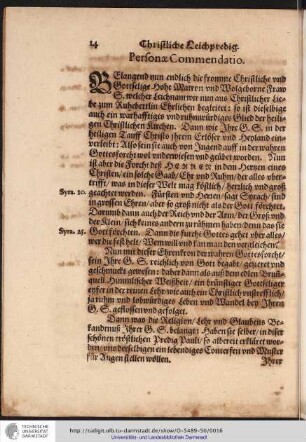 14 Christliche Leichpredig.
Personæ Commendatio.
BElangend nun endlich die fromme Christliche vnd
Gottselige Hohe Matron vnd Wolgeborne Fraw
S. welcher Leichnam wir nun aus Christlicher Lie-
be zum Ruhebettlin Ehrlichen begleitet: so ist dieselbige
auch ein warhafftigts vnd ruhmwürdigs Glied der heiligen
Christlichen Kirchen. Dann wie Ihre G. S. in der
heiligen Tauff Christo ihrem Erlöser vnd Heyland ein-
verleibt: Also sein sie auch von Jugend auff in der wahren
Gottesforcht wol vnderwiesen vnd geübet worden. Nun
ist aber die Forcht deß HERREN im Hertzen eines
Christen, ein solche Gaab, Ehr vnd Ruhm, der alles vber-
trifft, was in dieser Welt mag köstlich, herrlich vnd groß
Syr. 10. geachtet werden. Fürsten vnd Herren (sagt Syrach) sind
in grossen Ehren, aber so groß nicht als der Gott förchtet.
Darumb dann auch der Reich vnd der Arm, der Groß vnd
der Klein, sich keines andern zu rühmen haben denn daß sie
Syr. 25. Gott förchten. Dann die forcht Gottes gehet vber alles,
wer die fest helt, Wem will vnd kan man den vergleichen?
Nun mit dieser Ehrenkron der wahren Gottesforcht,
sein Ihre G. S. reichlich von Gott begabt, gezieret vnd
geschmückt gewesen: daher dann als auß dem edlen Brünn-
quell Himmlischer Weißheit, ein brünstiger Gottseliger
eyfer in der reinen Lehr wie auch ein Christlich vnsträfflich,
ja ruhm vnd lobwürdiges Leben vnd Wandel bey Ihren
G. S. geflossen vnd gefolget.
Dann was die Religion, Lehr vnd Glaubens Be-
kandtnuß Ihrer G. S. belangt: Haben sie selber in dieser
schönen tröstlichen Predig Pauli, so allbereit erkläret wor-
den, vns derselbigen ein lebendiges Conterfey vnd Muster
für Augen stellen wöllen.
Ihrer
TECHNISCHE
UNIVERSITÄT
DARMSTADT
http://tudigit.ulb.tu-darmstadt.de/show/O-5489-50/0016
Universitäts- und Landesbibliothek Darmstadt